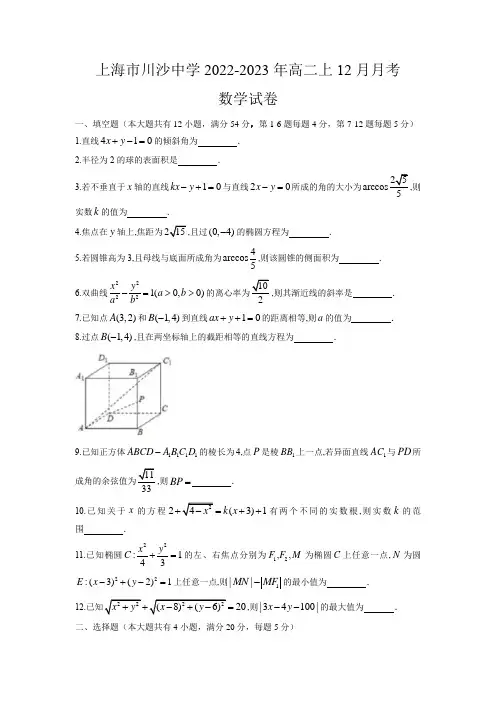 上海市川沙中学 2022-2023 年高二上 12 月月考
数学试卷
一、填空题（本大题共有 12 小题，满分 54 分，第 1-6 题每题 4 分，第 7-12 题每题 5 分）
1.直线 4x + y −1 = 0 的倾斜角为 ．
2.半径为 2 的球的表面积是 ．
3.若不垂直于 x 轴的直线 kx − y +1 = 0 与直线 2x − y = 0 所成的角的大小为 arccos (2√5)/5 ,则
实数 k 的值为 ．
4.焦点在 y 轴上,焦距为 2√15 ,且过 (0,−4) 的椭圆方程为 ．
5.若圆锥高为 3,且母线与底面所成角为 arccos 4/5 ,则该圆锥的侧面积为 ．
6.双曲线 x²/a² − y²/b² = 1(a > 0,b > 0) 的离心率为 √10/2 ,则其渐近线的斜率是 ．
7.已知点 A(3,2) 和 B(−1,4) 到直线 ax + y +1 = 0 的距离相等,则 a 的值为 ．
8.过点 B(−1,4) ,且在两坐标轴上的截距相等的直线方程为 ．
D₁ C₁
A₁ B₁
P
D C
A B
9.已知正方体 ABCD − A₁B₁C₁D₁ 的棱长为 4,点 P 是棱 BB₁ 上一点,若异面直线 AC₁ 与 PD 所
成角的余弦值为 √11/33 ,则 BP = ．
10.已知关于 x 的方程 2 + √(4 − x²) = k(x + 3) +1 有两个不同的实数根,则实数 k 的范
围 ．
11.已知椭圆 C : x²/4 + y²/3 = 1 的左、右焦点分别为 F₁, F₂, M 为椭圆 C 上任意一点, N 为圆
E : (x − 3)² + (y − 2)² = 1 上任意一点,则 | MN | − |MF₁| 的最小值为 ．
12.已知 √(x² + y²) + √((x − 8)² + (y − 6)²) = 20 ,则 | 3x − 4y −100 | 的最大值为 ．
二、选择题（本大题共有 4 小题，满分 20 分，每题 5 分）